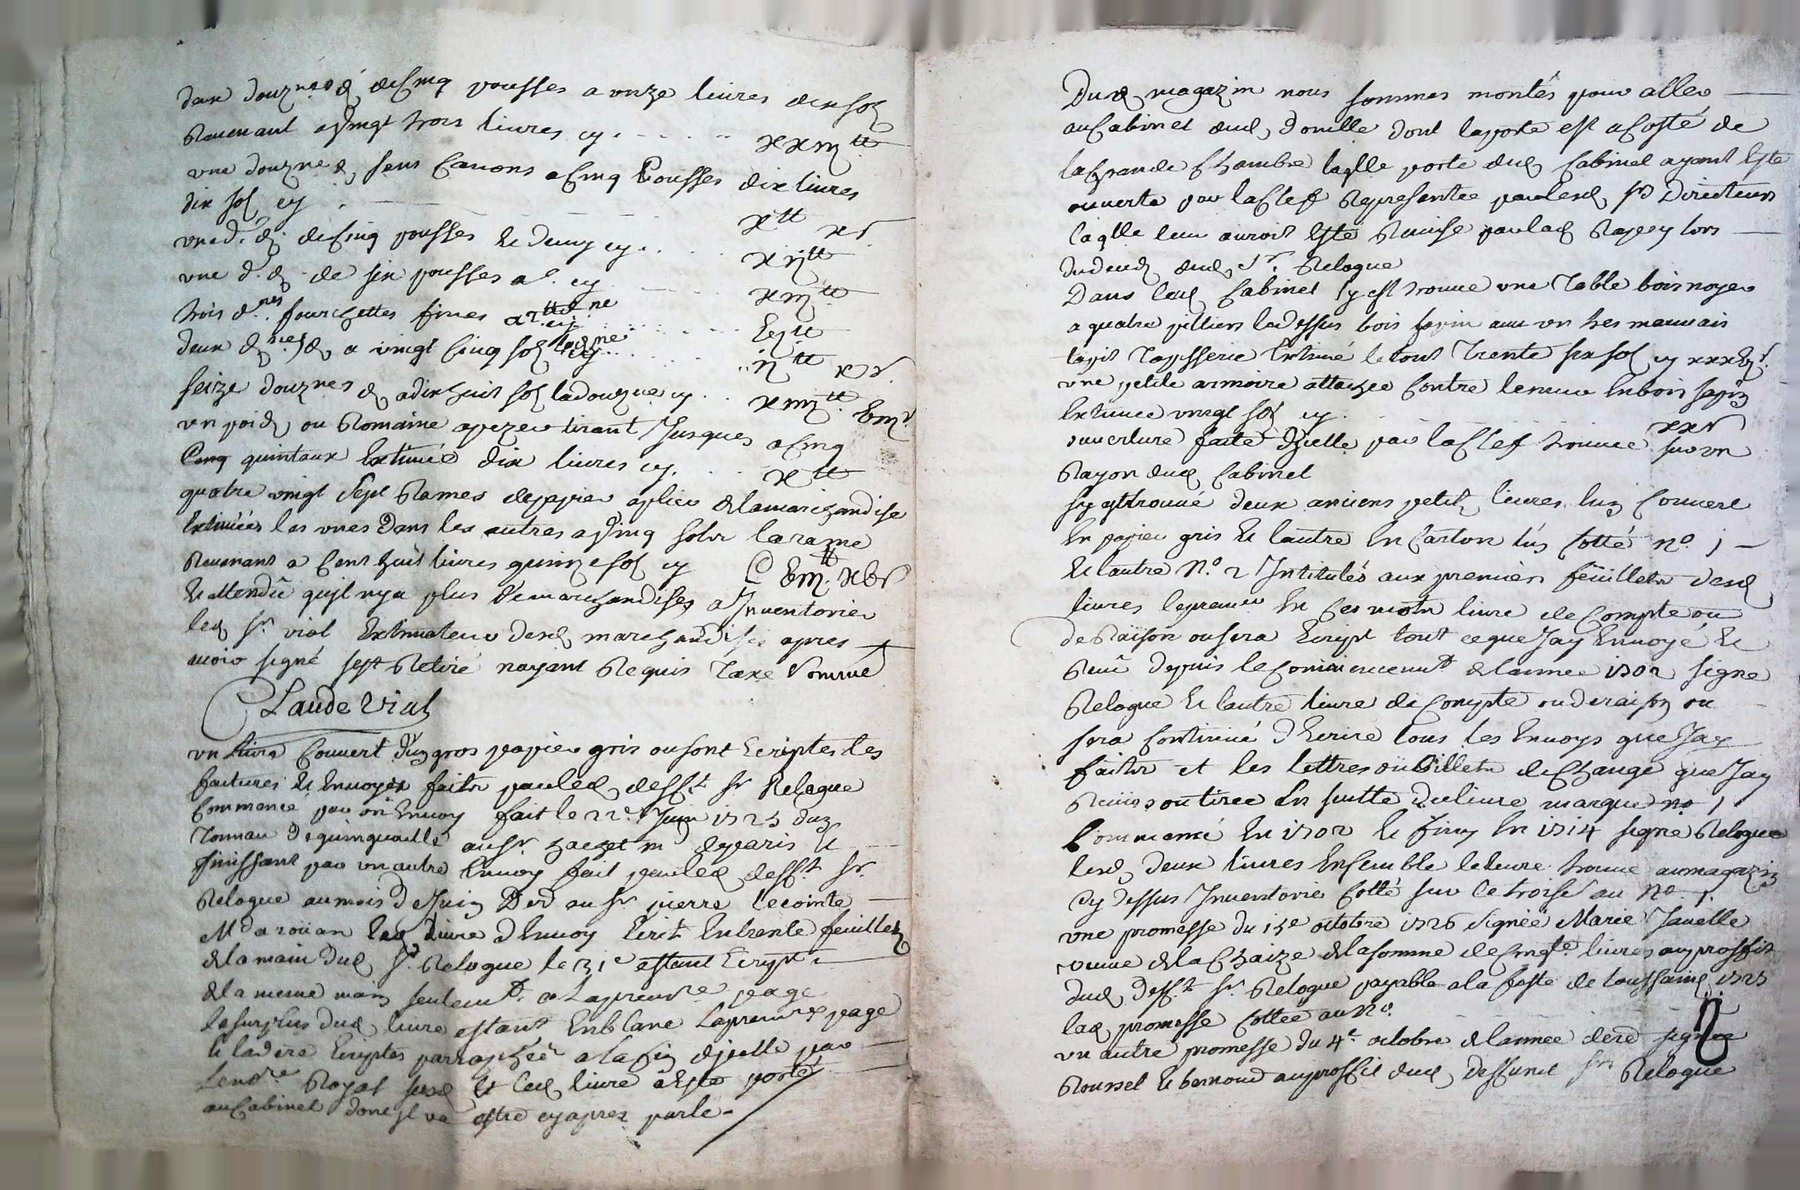 deux douznes d. de Cinq pousses a onze livres dix sols
Revenant a vingt trois livres cy. xxiij tt
une douzne d. sens Canons a Cinq Pousses dix livres
dix sols cy x tt x s.
une d. d. de Cinq pousses et demy cy.. xij tt
une d. d. de six pousses a d. cy xiij tt
trois d.nes fourchettes fines a cy
deux d.nes d. a vingt Cinq sols cy ij tt x s.
seize douznes d. a dixhuit sols la douzne cy. xiiij tt viij s
un poid ou Romaine a pezer tirant Jusques a Cinq
Cinq quintaux Extimée dix livres cy. x tt
quatre vingt sept Rames de papier a plier de la marchandise
Extimées les unes dans les autres a vingt solz la rame
Revenant a Cent huit livres quinze sols cy C viij tt xv s
et attendû quil ny a plus de marchandises a Inventorier
led. sr. vial Extimateur desd. marchandises apres
avoir signé sest Retiré nayant Requis Taxe Sommé
Claude Vial
un livre Couvert dun gros papier gris ou sont Ecriptes les
factures et Envoyes faits par led. defft. sr Relogue
Commance par un Envoy fait le 22e Juin 1723 dun
Tonnau de quinquaille au sr. md. de paris et
finissant par un autre Envoy fait par led. defft. sr.
Relogue au mois de Juin Der au sr. pierre Lecointe
Md a roüan led. Livre d'Envoy Ecrit En trente feuillets
de la main dud. sr. Relogue le 31e estant Ecript
de la meme main seulemt. a La premre page
le surplus dud. livre estant En blanc La premre page
et la dre Ecriptes parraphée a la fin dicelle par
Lendre Royal susd. et led. livre a Esté porté
au Cabinet dont il va estre cy apres parlé.
Dud. magazin nous sommes montés pour aller
au Cabinet dud. domille dont la porte est a Costé de
la grande Chambre laqlle porte dud. Cabinet ayant Esté
ouverte par la Clef Representée par lesd. srs Directeurs
laqlle leur auroit Esté Remise par lad. Rapey lors
du deced. dud. Sr. Relogue
Dans led. Cabinet sy est trouvé une Table bois noyer
a quatre pilliers le dessus bois sapin avec un tres mauvais
tapis Tapisserie Extimé le tout Trente six sols cy xxxvj s.
une petite armoire attachée Contre le mur En bois sapin
Extimée vingt sols cy. xx s
ouverture faite dicelle par la Clef trouvée sur un
Rayon dud. Cabinet
sy est trouvé deux anciens petits livres lun Couvert
En papier gris et lautre En Carton lun Cotté No. 1
et lautre No. 2 Intitulés aux premiers feuillets desd.
livres le premier En Ces mots livre de Compte ou
de Raison ou sera Ecript tout ce que Jay Envoyé et
Receû depuis le Commencemt. de lannée 1702 signé
Relogue et lautre livre de Compte ou de raison ou
sera Continué d'Ecrire tous les Envoys que Jay
faits et les lettres ou billets de Change que Jay
Reçües ou tirée En suitte du livre marque no 1
Commancé En 1702 et finy En 1714 signé Relogue
lesd. deux livres Ensemble le livre trouvé au magazin
cy dessus Inventorié Cotté sur le troisé. au No. 1.
une promesse du 15e octobre 1726 signée Marie Javelle
veuve de la Chaize de la somme de Cinqte livres au proffit
dud. defft. sr. Relogue payable a la feste de toussaint 1725
lad. promesse Cottée au No.
un autre promesse du 4e. octobre de lannée dere signée
Roussel et bernoud au proffit dud. deffunt sr. Relogue